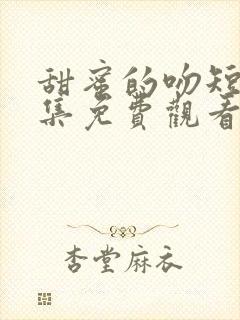 甜蜜的吻短
集免費觀看
杏堂麻衣